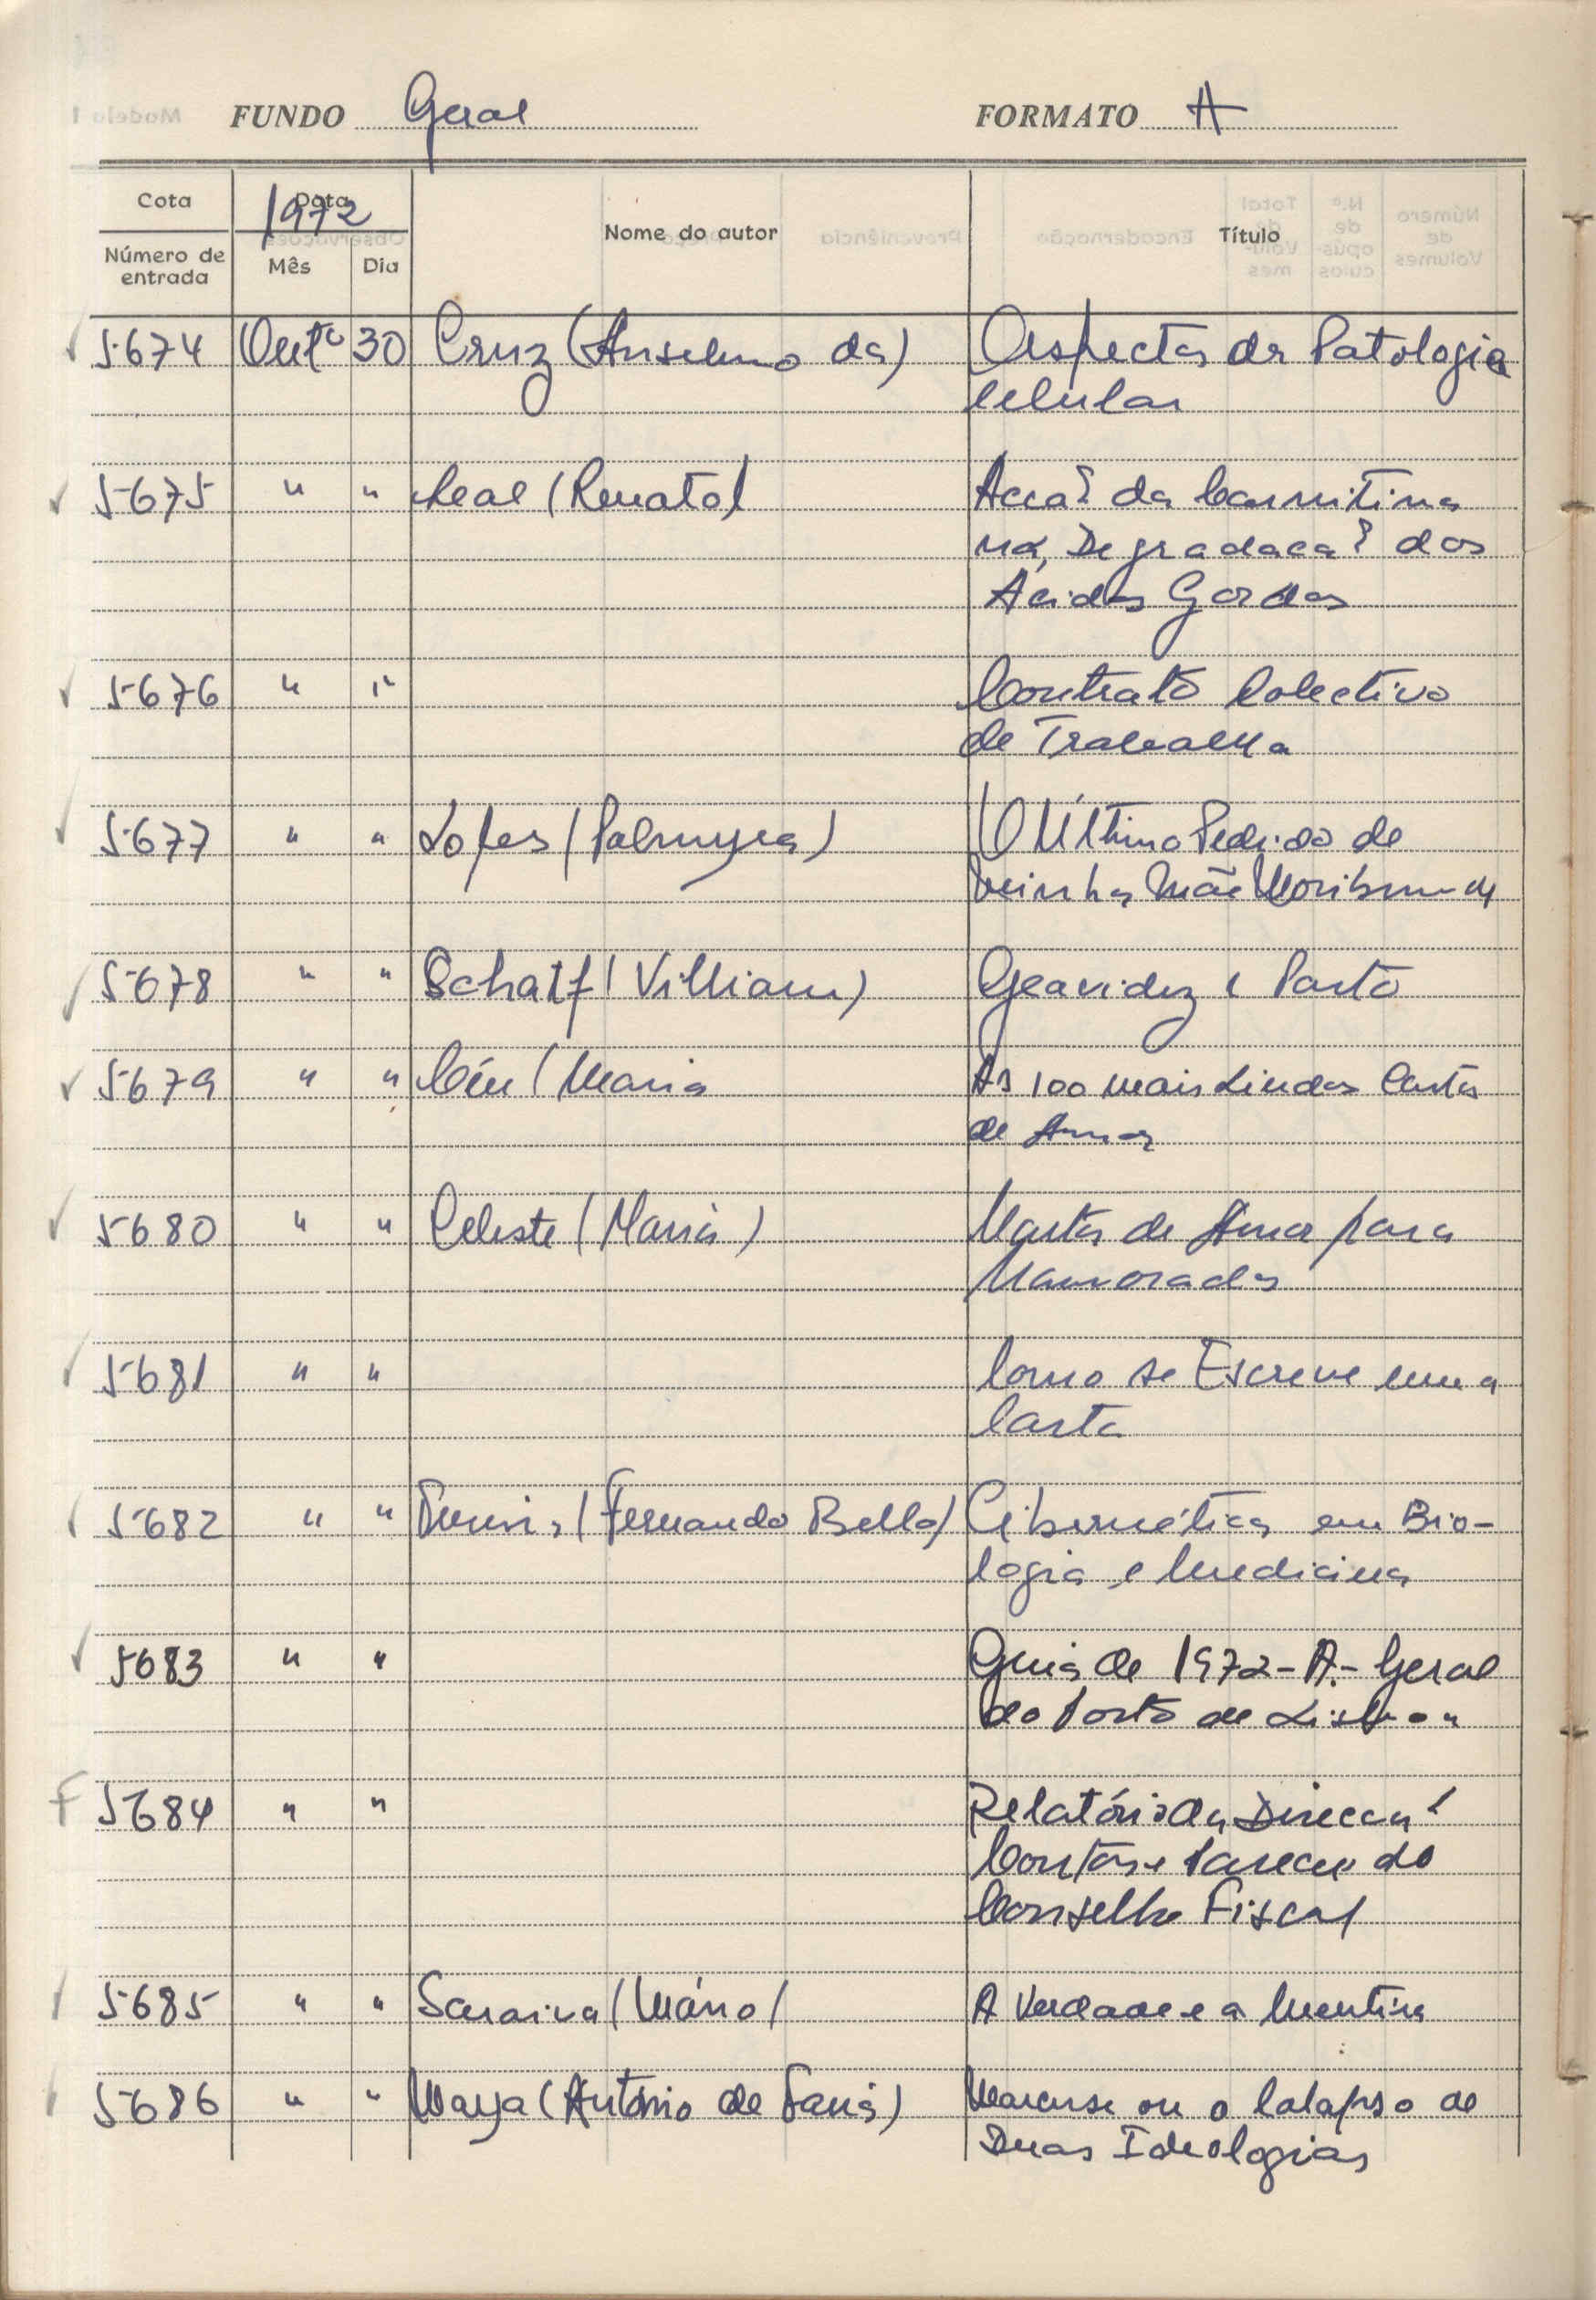 FUNDO Geral FORMATO A
Cota Data 1972 Nome do autor Título
Número de entrada Mês Dia
5674 Outº 30 Cruz (Anselmo da) Aspectos da Patologia
Celular
5675 " " Leal (Renato) Acção da Carnitina
na Degradação dos
Ácidos Gordos
5676 " " Contrato Colectivo
de Trabalho
5677 " " Lopes (Palmyra) O Último Pedido de
Minha Mãe Moribunda
5678 " " (Villiam) Gravidez e Parto
5679 " " Céu (Maria As 100 mais Lindas Cartas
de Amor
5680 " " Celeste (Maria) Cartas de Amor para
Namorados
5681 " " Como se Escreve uma
Carta
5682 " " (Fernando Bello) Cibernética em Bio-
logia e Medicina
5683 " " Guia de 1972-A.- Geral
do Porto de Lisboa
F 5684 " " Relatório da Direcção
Contas e Parecer do
Conselho Fiscal
5685 " " Saraiva (Mário) A Verdade e a Mentira
5686 " " Maya (António de Faria) Marcuse ou o Colapso de
Duas Ideologias